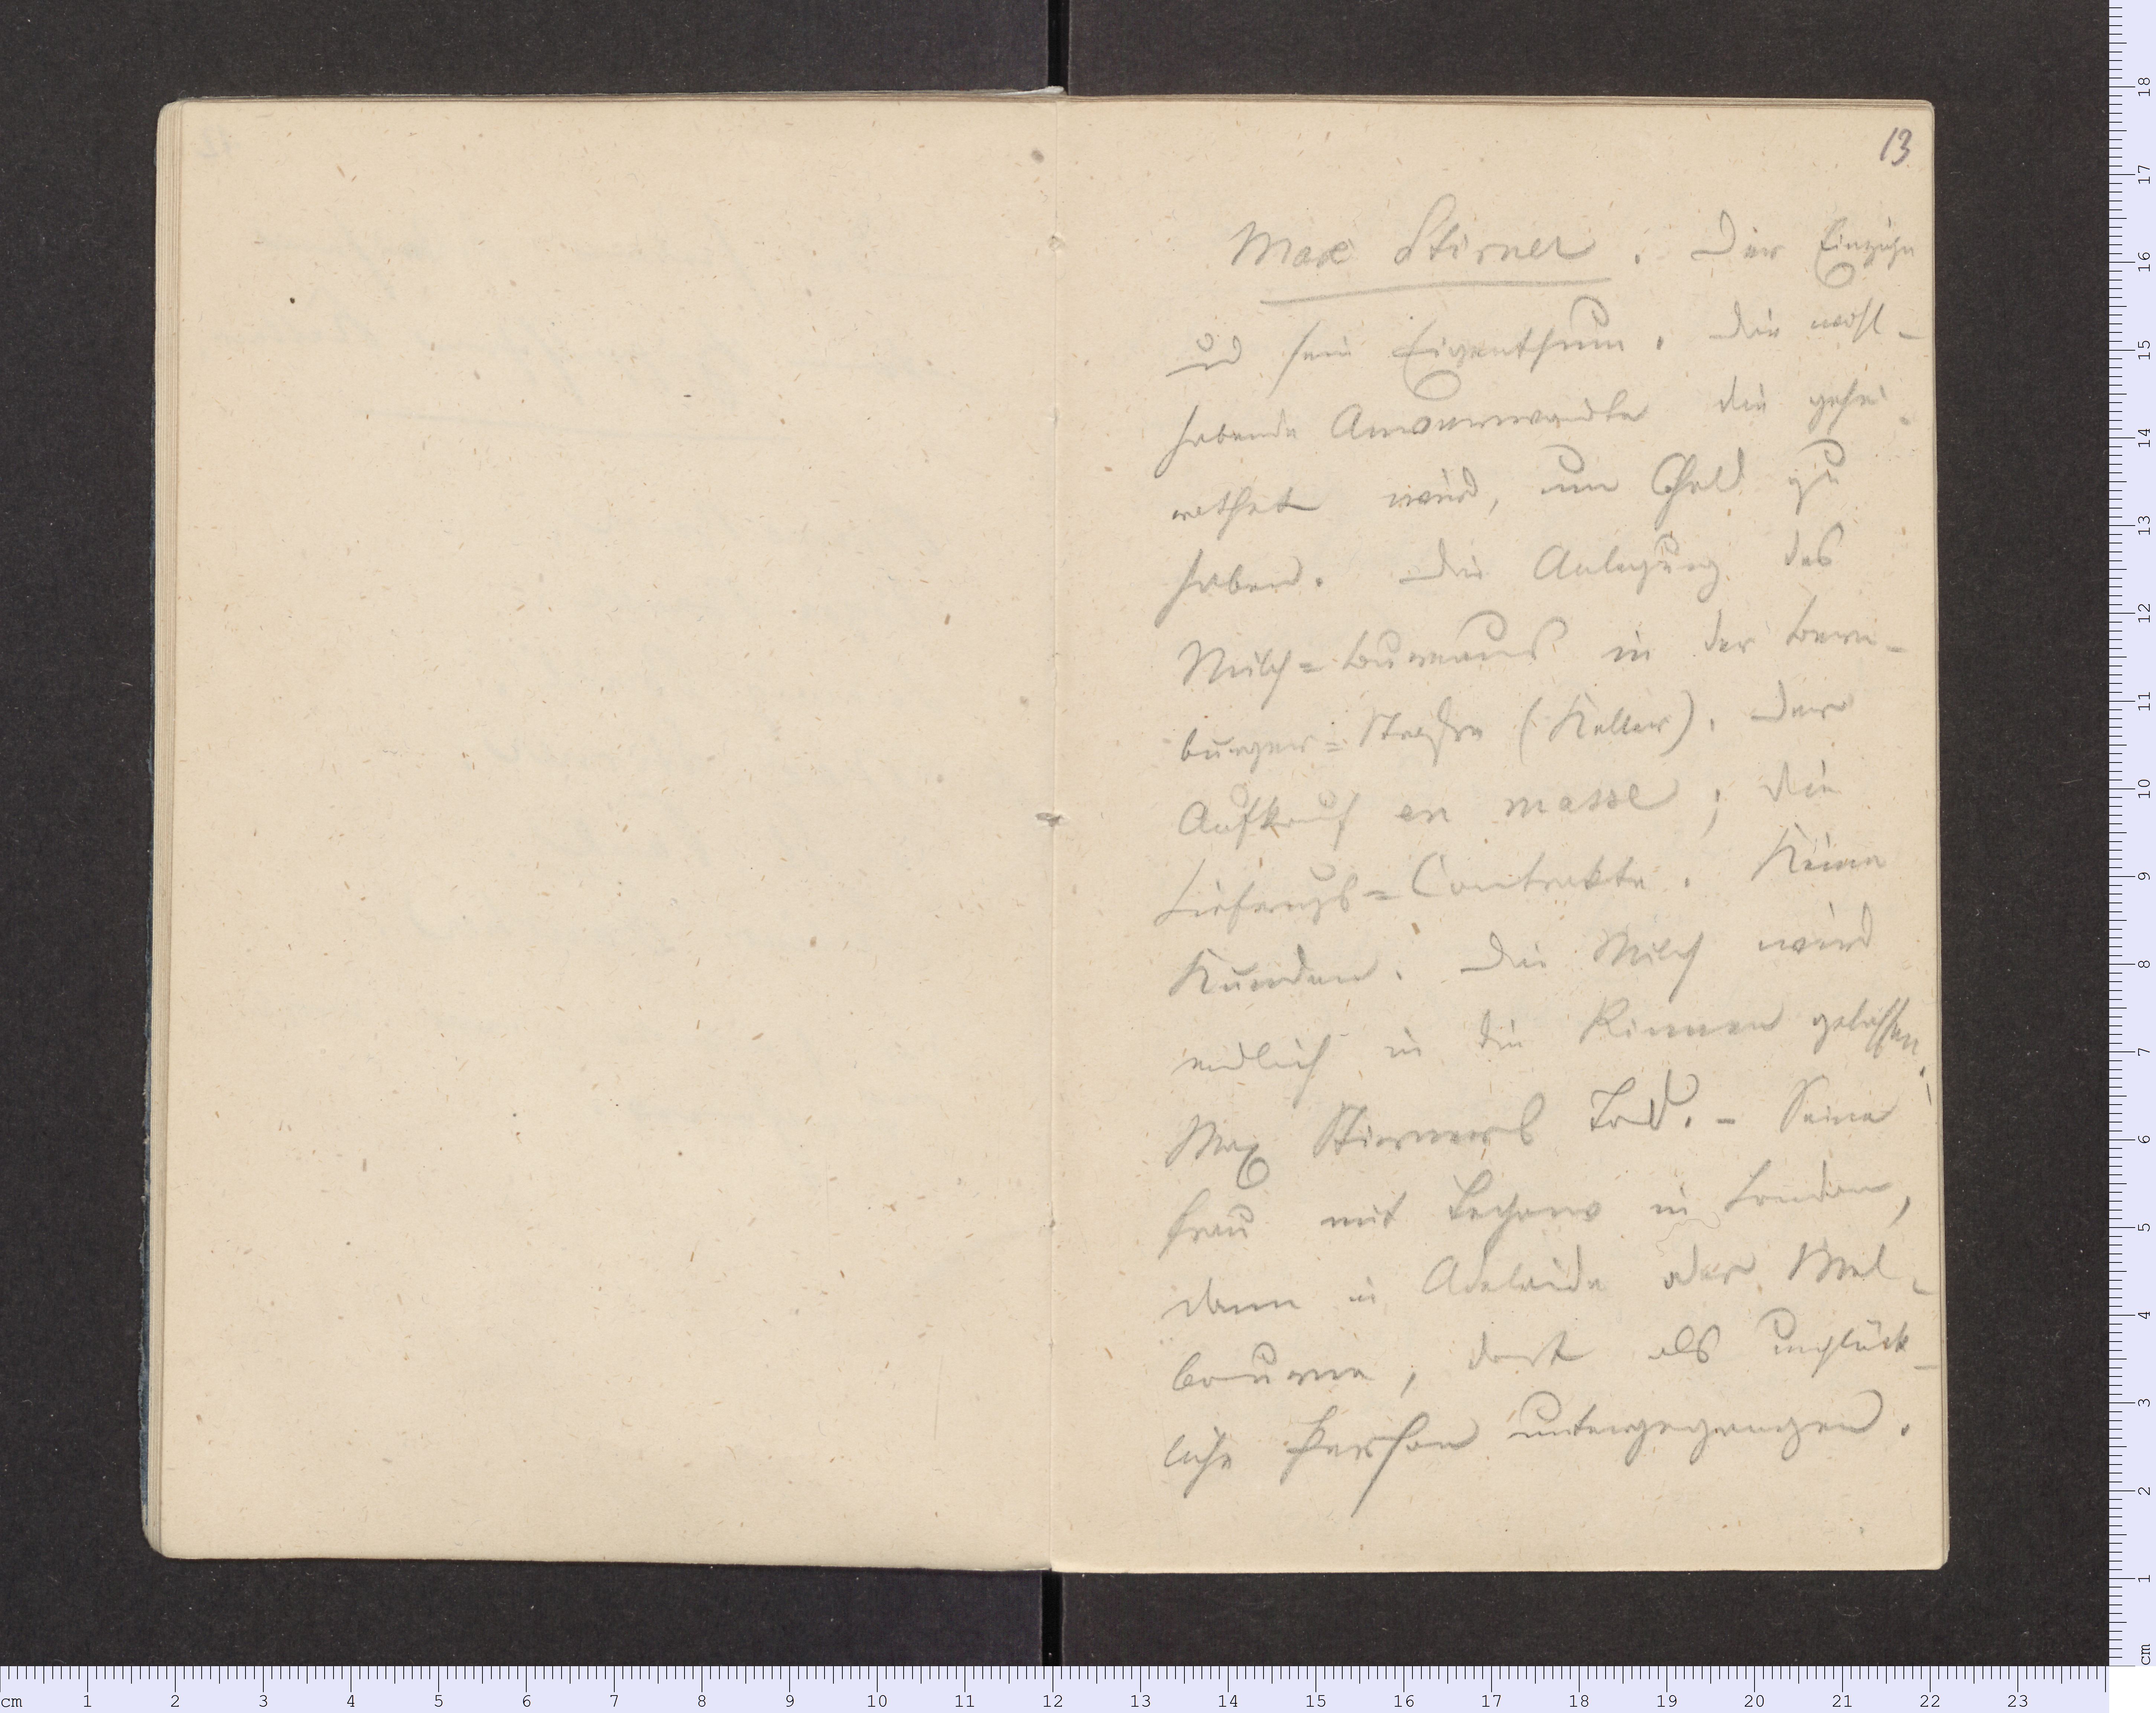 13
Max Stirner. Der Einzige
und sein Eigenthum. Die wohl-
habende Anverwandte die gehei-
rathet wird, um Geld zu
haben. Die Anlegung des
Milch=Bureaus in der Bern-
burger=Straße (Keller). Der
Aufkauf en masse; die
Liefrungs=Contrakte. Keine
Kunden. Die Milch wird
endlich in die Rinnen gelassen.
Max Stirners Tod. – Seine
Frau mit Techow in London,
dann in Adelaide oder Mel-
bourne, dort als unglück-
liche Person untergegangen.